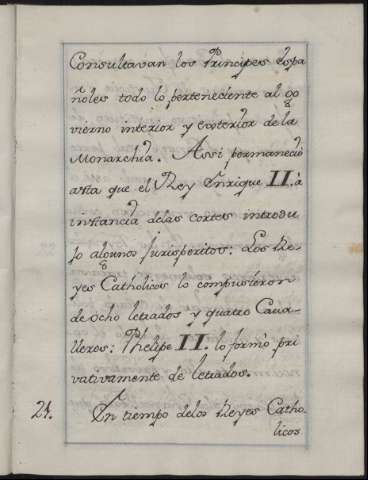 Consultavan los Principes Espa
ñoles todo lo perteneciente al go
vierno interior y exterior de la
Monarchia. Assi permaneciò
asta que el Rey Enrique II. à
instancia de las cortes introdu
jo algunos Jurisperitos: Los Re
yes Catholicos lo compusieron
de ocho letrados y quatro Cava-
lleros: Phelipe II. lo formò pri
vativamente de letrados.
24. En tiempo de los Reyes Catho-
licos